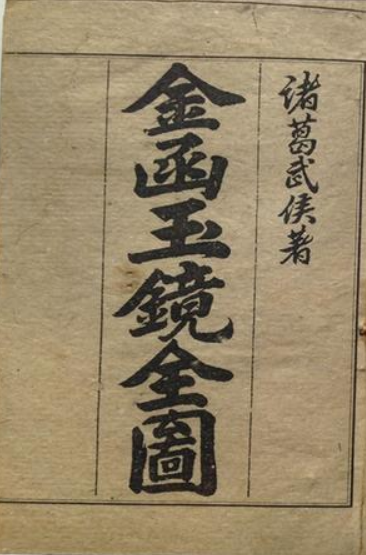 诸葛武侯著
金函玉鏡全圖